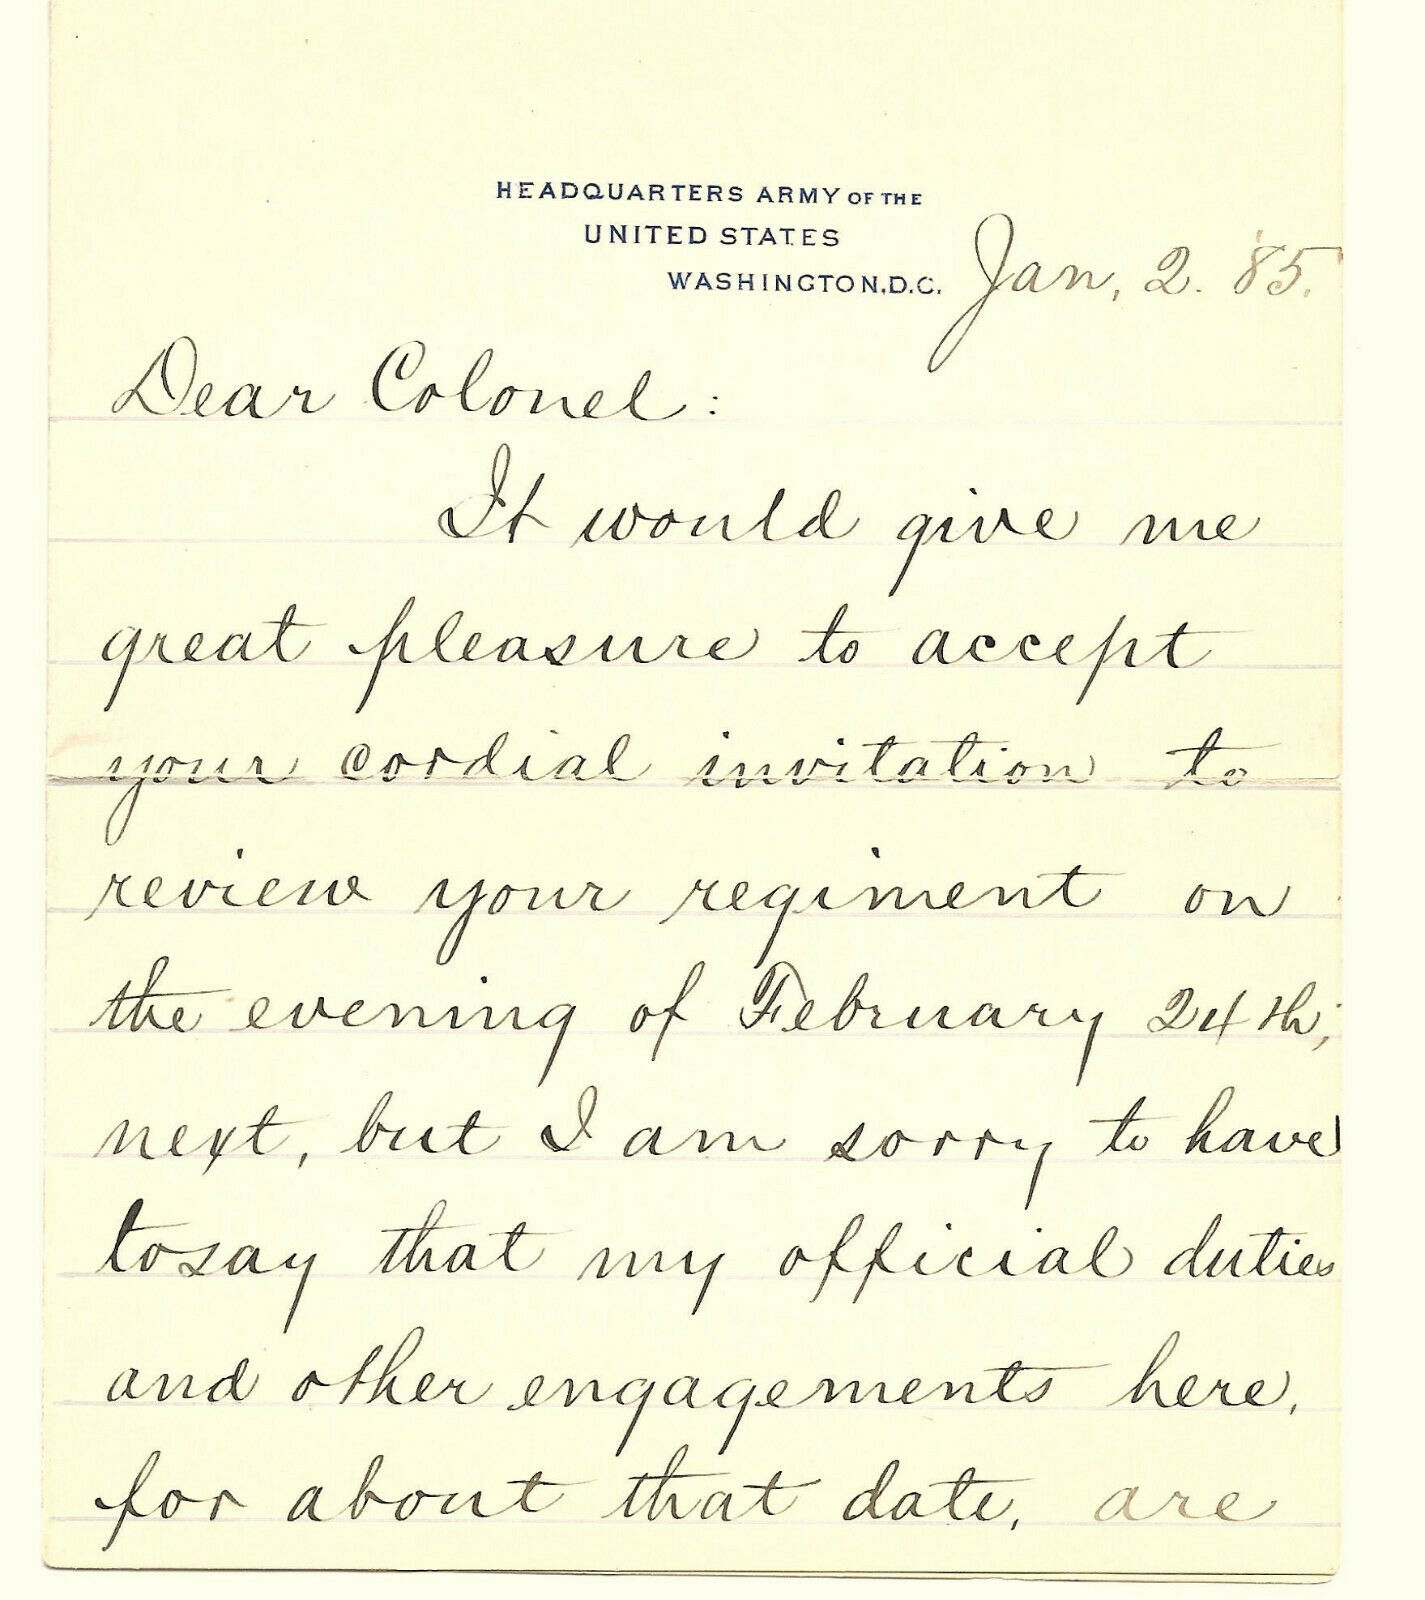 HEADQUARTERS ARMY OF THE
UNITED STATES
WASHINGTON, D.C. Jan, 2. '85.
Dear Colonel:
It would give me
great pleasure to accept
your cordial invitation to
review your regiment on
the evening of February 24th,
next, but I am sorry to have
to say that my official duties
and other engagements here,
for about that date, are